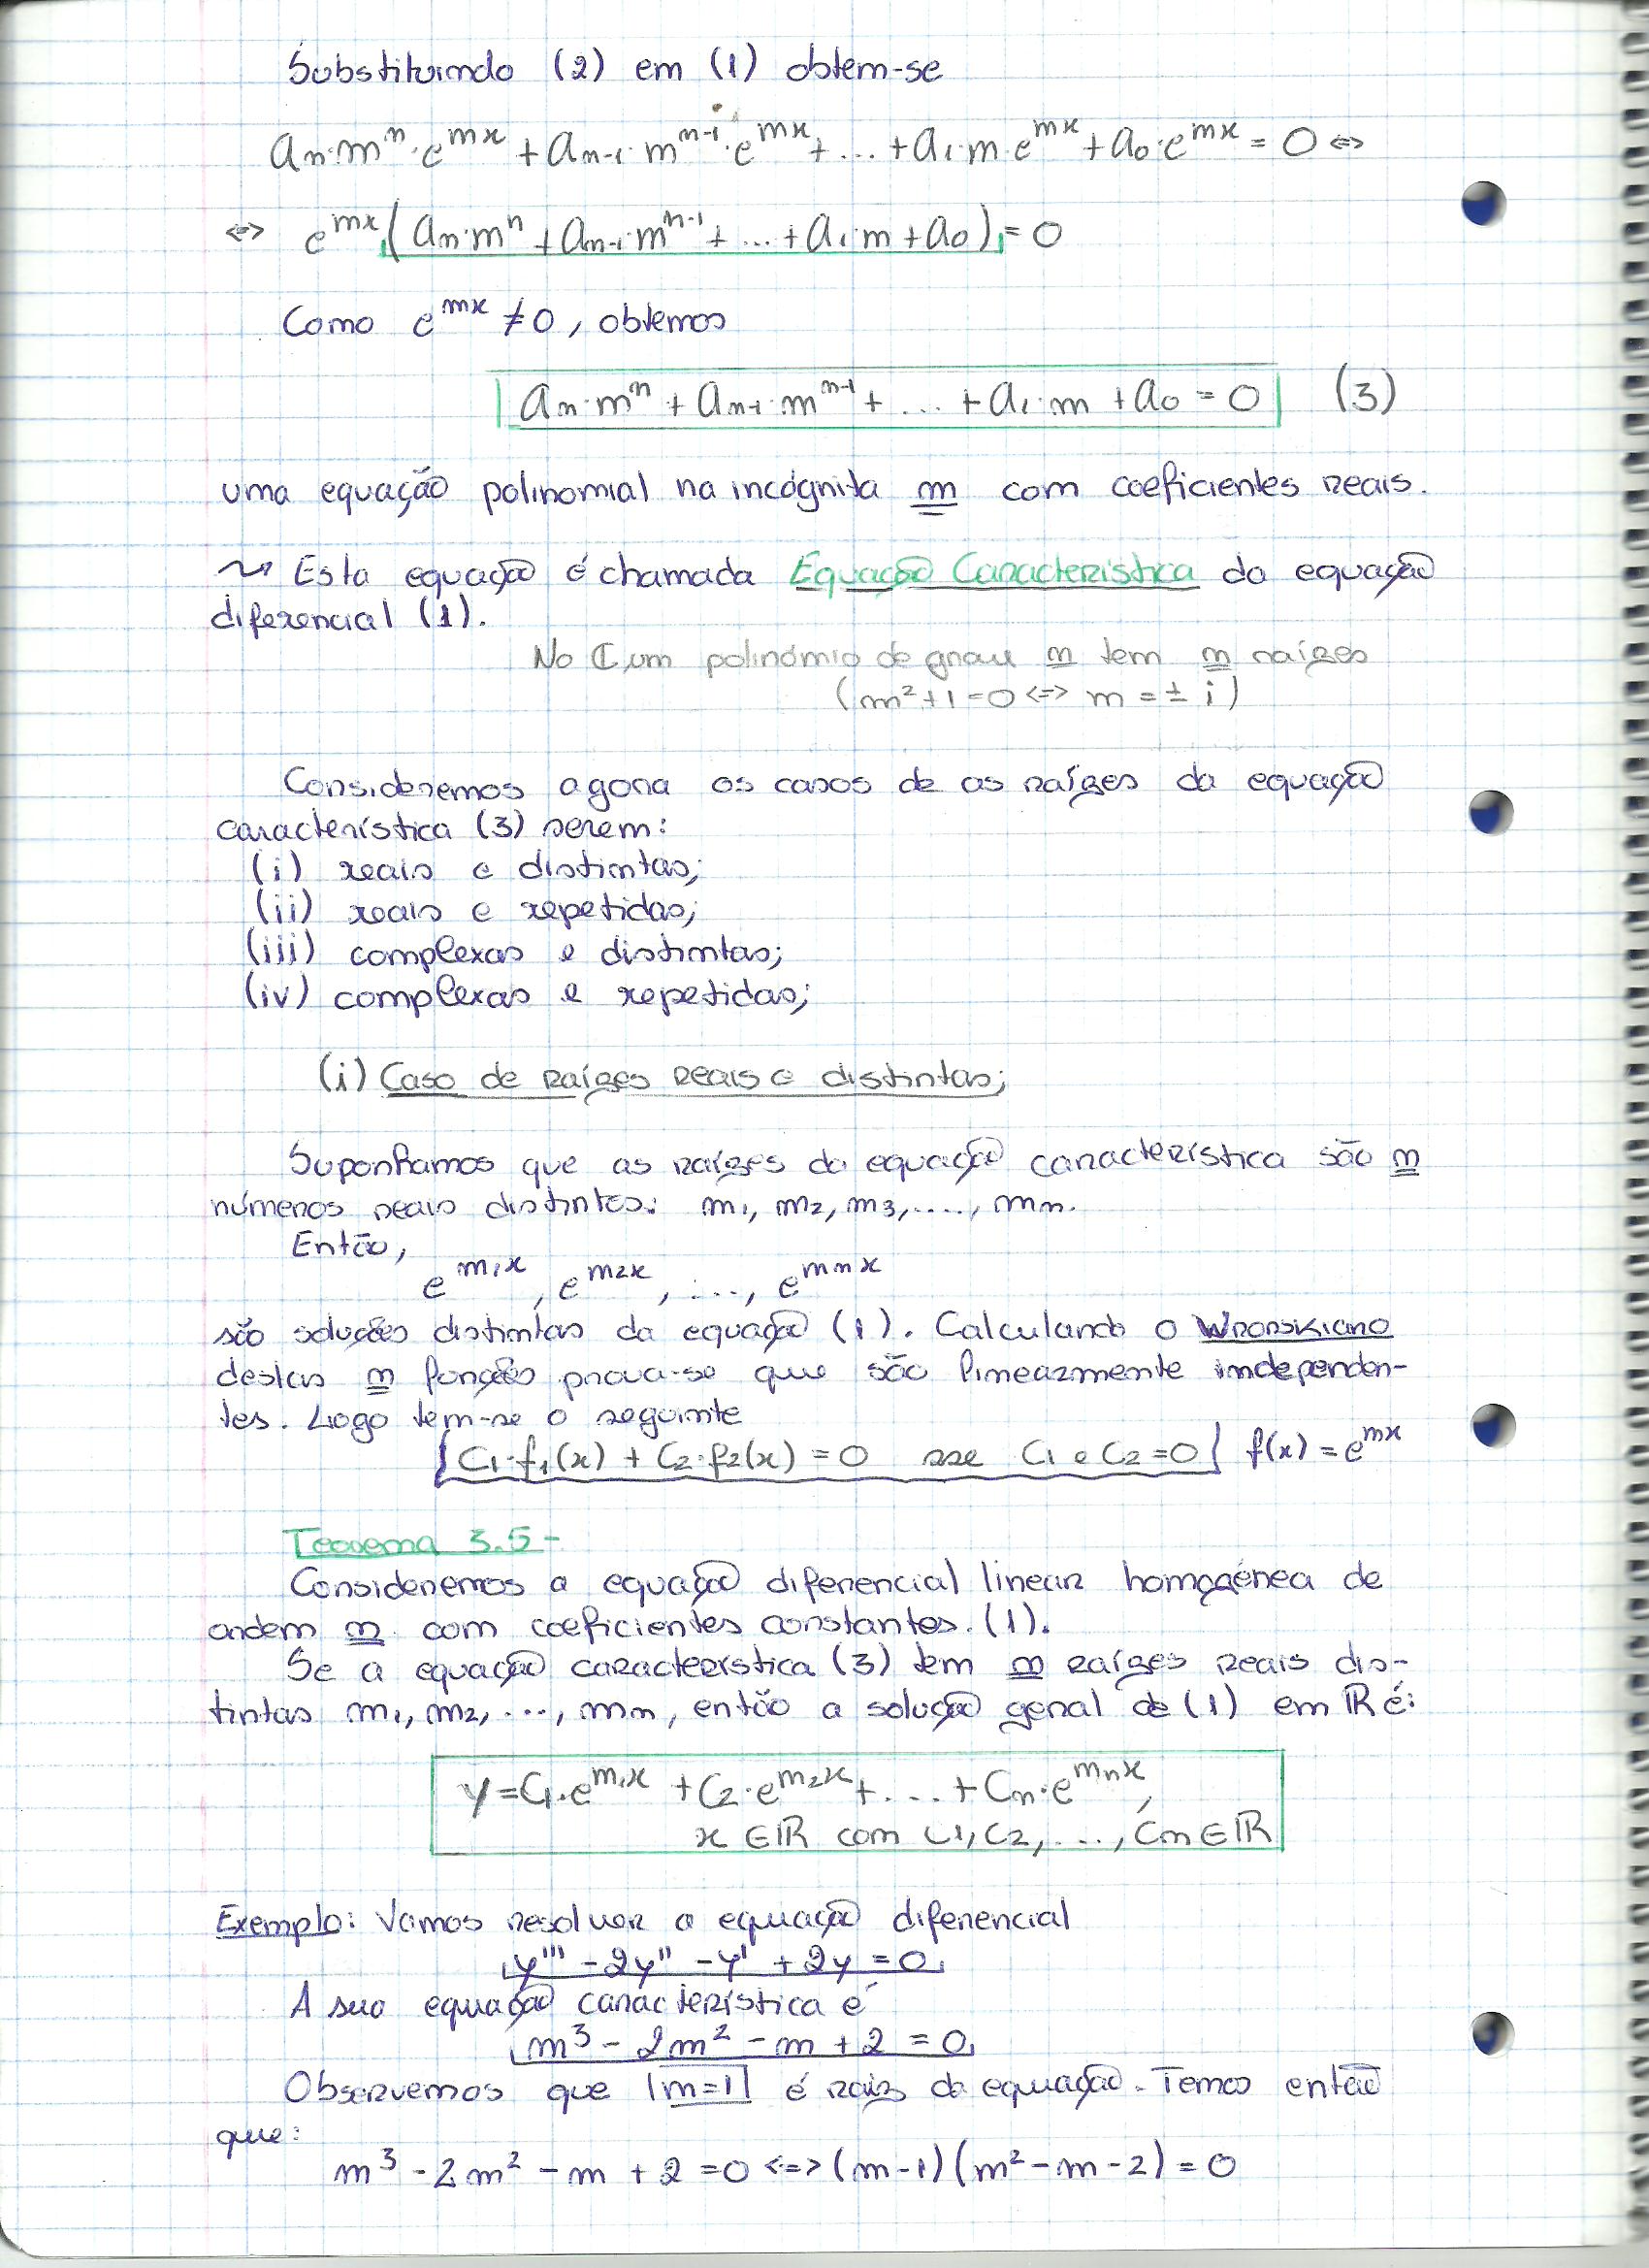 Substituindo (2) em (1) obtem-se
aₙ·mⁿ·e^{mx} + aₙ₋₁·m^{n-1}·e^{mx} + ... + a₁·m·e^{mx} + a₀·e^{mx} = 0 <=>
<=> e^{mx} (aₙ·mⁿ + aₙ₋₁·m^{n-1} + ... + a₁·m + a₀) = 0
Como e^{mx} ≠ 0, obtemos
aₙ·mⁿ + aₙ₋₁·m^{n-1} + ... + a₁·m + a₀ = 0 (3)
uma equação polinomial na incógnita m com coeficientes reais.
↝ Esta equação é chamada Equação Característica da equação
diferencial (1).
No ℂ, um polinómio de grau n tem n raízes
(m² + 1 = 0 <=> m = ± i)
Consideremos agora os casos de as raízes da equação
característica (3) serem:
(i) reais e distintas;
(ii) reais e repetidas;
(iii) complexas e distintas;
(iv) complexas e repetidas;
(i) Caso de raízes reais e distintas;
Suponhamos que as raízes da equação característica são n
números reais distintos: m₁, m₂, m₃, ...., mₙ.
Então,
e^{m₁x}, e^{m₂x}, ..., e^{mₙx}
são soluções distintas da equação (1). Calculando o Wronskiano
destas n funções prova-se que são linearmente independen-
tes. Logo tem-se o seguinte
C₁·f₁(x) + C₂·f₂(x) = 0 sse C₁ e C₂ = 0 f(x) = e^{mx}
Teorema 3.5-
Consideremos a equação diferencial linear homogénea de
ordem n com coeficientes constantes. (1).
Se a equação característica (3) tem n raízes reais dis-
tintas m₁, m₂, ..., mₙ, então a solução geral de (1) em ℝ é:
y = C₁·e^{m₁x} + C₂·e^{m₂x} + ... + Cₙ·e^{mₙx},
x ∈ ℝ com C₁, C₂, ..., Cₙ ∈ ℝ
Exemplo: Vamos resolver a equação diferencial
y''' - 2y'' - y' + 2y = 0
A sua equação característica é
m³ - 2m² - m + 2 = 0
Observemos que m=1 é raiz da equação. Temos então
que:
m³ - 2m² - m + 2 = 0 <=> (m-1)(m² - m - 2) = 0